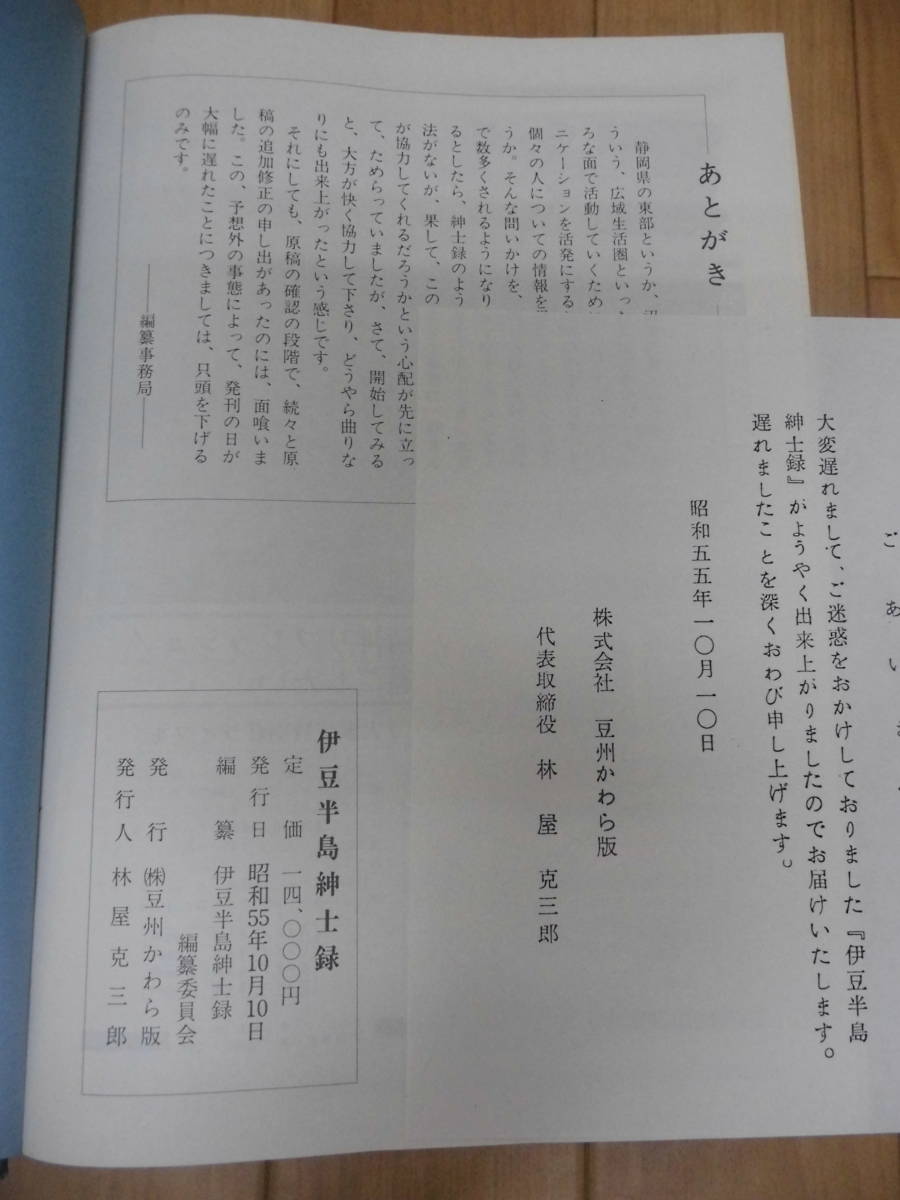 あとがき
静岡県の東部というか、
ういう、広域生活圏といっ
ろな面で活動していくため
ニケーションを活発にする
個々の人についての情報を
うか。そんな問いかけを、
で数多くされるようになり
るとしたら、紳士録のよう
法がないが、果して、この
が協力してくれるだろうかという心配が先に立っ
て、ためらっていましたが、さて、開始してみる
と、大方が快く協力して下さり、どうやら曲りな
りにも出来上がったという感じです。
それにしても、原稿の確認の段階で、続々と原
稿の追加修正の申し出があったのには、面喰いま
した。この、予想外の事態によって、発刊の日が
大幅に遅れたことにつきましては、只頭を下げる
のみです。
――編纂事務局――
ごあい
大変遅れまして、ご迷惑をおかけしておりました『伊豆半島
紳士録』がようやく出来上がりましたのでお届けいたします。
遅れましたことを深くおわび申し上げます。
昭和五五年一〇月一〇日
株式会社 豆州かわら版
代表取締役 林屋克三郎
伊豆半島紳士録
定価 一四、〇〇〇円
発行日 昭和55年10月10日
編纂 伊豆半島紳士録
編纂委員会
発行 ㈱豆州かわら版
発行人 林屋克三郎